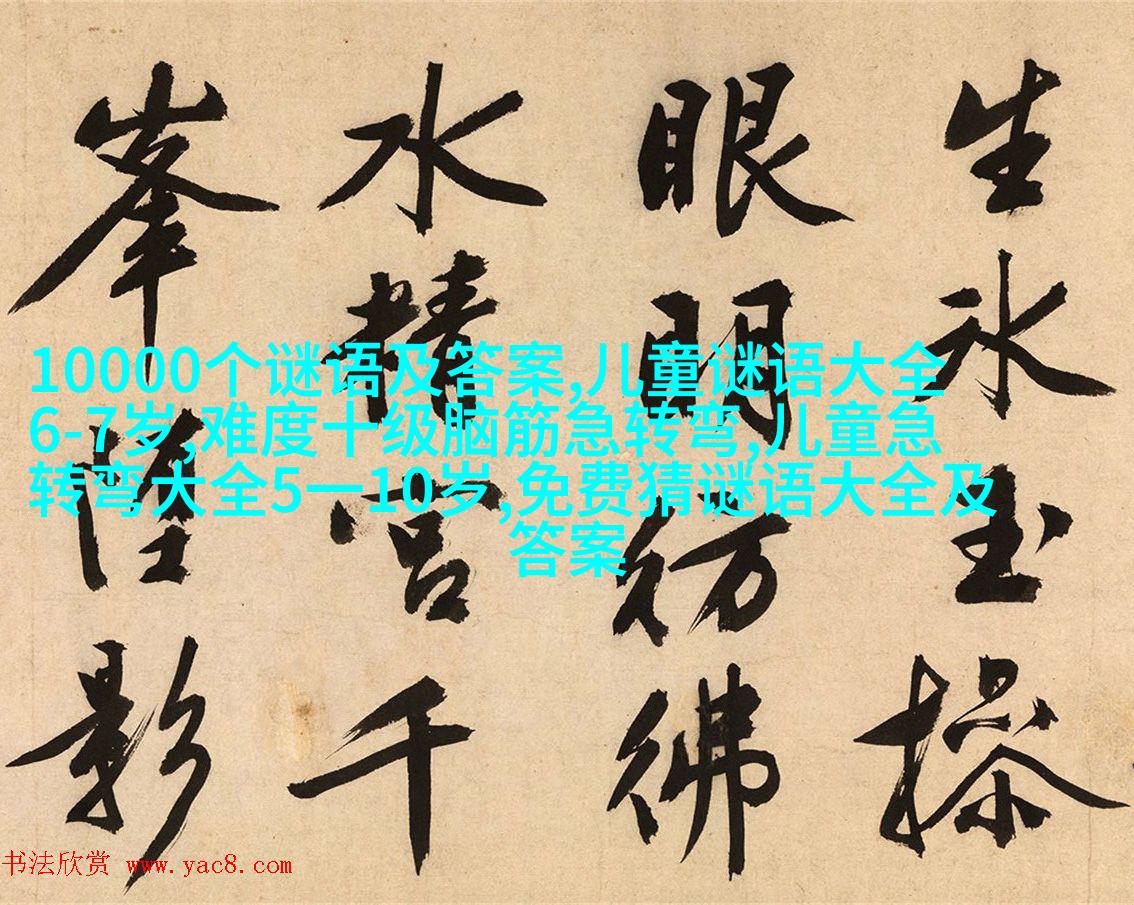 生氷玉操
眼明彷彿
水精宮千
峯影
10000个谜语及答案,儿童谜语大全
6-7岁,难度十级脑筋急转弯,儿童急
转弯大全5一10岁,免费猜谜语大全及
答案
书法欣赏 www.yac8.com